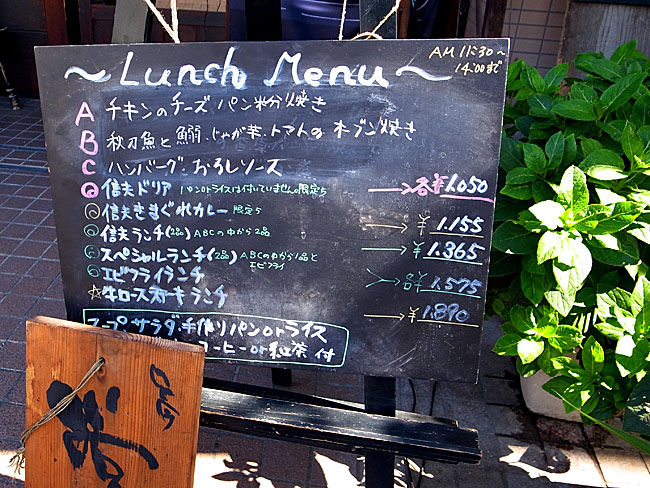 ～Lunch Menu～
AM 11:30～
14:00まで
A チキンのチーズパン粉焼き
B 秋刀魚と鰯.じゃが芋.トマトのオーブン焼き
C ハンバーグ.おろしソース
信夫ドリア パンorライスは付いていません。限定5
→各¥1.050
信夫きまぐれカレー 限定5
→¥1.155
信夫ランチ(2品) ABCの中から2品
→¥1.365
スペシャルランチ(2品) ABCの中から1品と
エビフライ
エビフライランチ
→各¥1.575
☆牛ロースステーキランチ
→¥1.890
スープ サラダ.手作りパンorライス
コーヒーor紅茶付